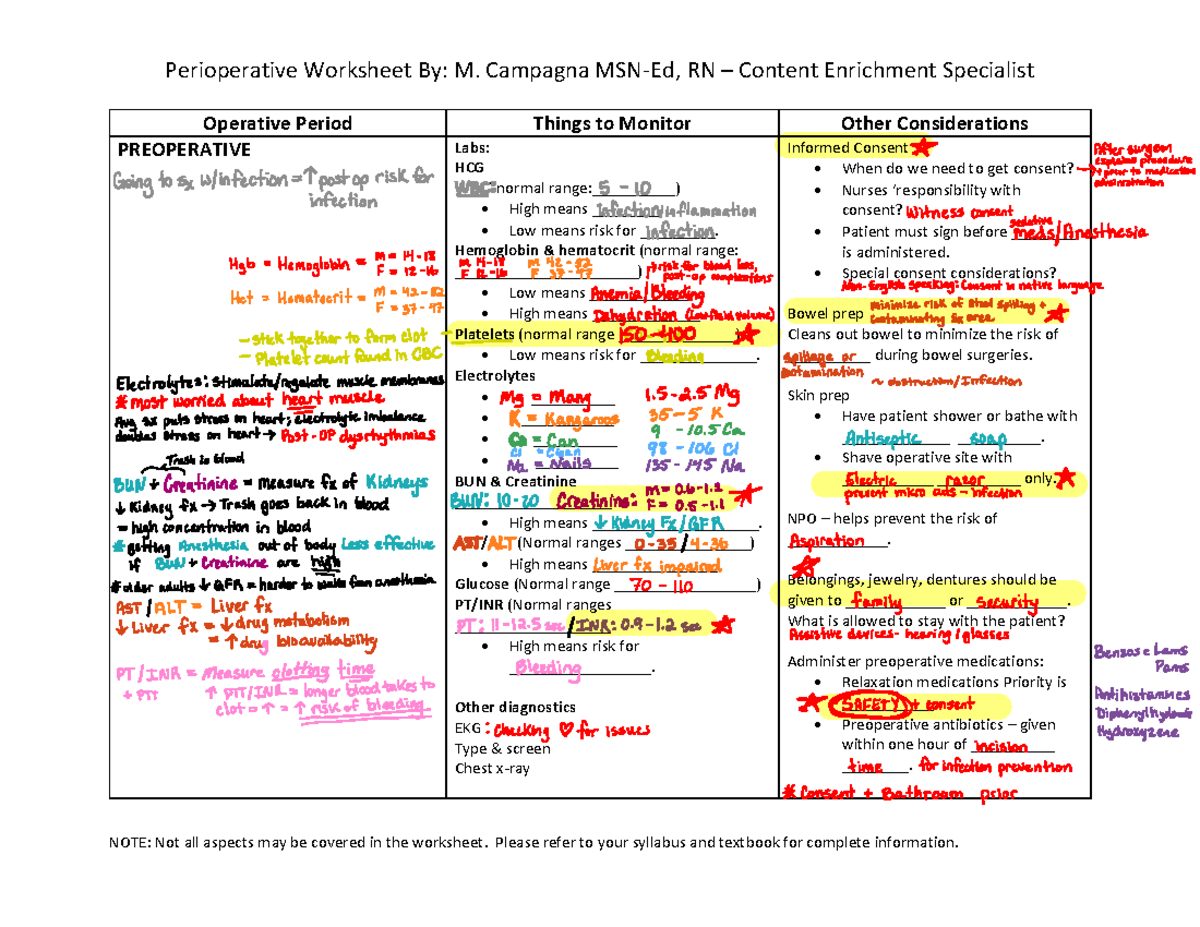 Perioperative Worksheet By: M. Campagna MSN-Ed, RN – Content Enrichment Specialist
Operative Period
PREOPERATIVE
Going to sx w/infection = ↑ post op risk for
infection
Hgb = Hemoglobin = M = 14-18
F = 12-16
Hct = Hematocrit = M = 42-52
F = 37-47
– stick together to form clot
– Platelet count found in CBC
Electrolytes: stimulate/regulate muscle membranes
* most worried about heart muscle
Any sx puts stress on heart; electrolyte imbalance
doubles stress on heart → Post-OP dysrhythmias
Trash in blood
BUN + Creatinine = measure fx of Kidneys
↓ Kidney fx → Trash goes back in blood
= high concentration in blood
* getting Anesthesia out of body Less effective
if BUN + Creatinine are high
* older adults ↓ GFR = harder to wake from anesthesia
AST / ALT = Liver fx
↓ Liver fx = ↓ drug metabolism
= ↑ drug bioavailability
PT/INR = Measure clotting time
+ PTT ↑ PTT/INR = longer blood takes to
clot = ↑ = ↑ risk of bleeding
Things to Monitor
Labs:
HCG
WBC: normal range: 5 - 10)
• High means Infection/inflammation
• Low means risk for infection.
Hemoglobin & hematocrit (normal range:
M 14-18 M 42-52
F 12-16 F 37-47 ) ↑ risk for blood loss,
post-op complications
• Low means Anemia/Bleeding
• High means Dehydration (Low fluid volume)
Platelets (normal range 150 – 400 )
• Low means risk for Bleeding.
Electrolytes
• Mg = Mang 1.5-2.5 Mg
• K = Kangaroos 35 – 5 K
• Ca = Can 9 - 10.5 Ca
Cl = Clean 98 - 106 Cl
• Na = Nails 135 - 145 Na
BUN & Creatinine
BUN: 10-20 Creatinine: M = 0.6-1.2
F = 0.5-1.1
• High means ↓ Kidney Fx/GFR.
AST/ALT (Normal ranges 0-35 / 4-36 )
• High means Liver fx impaired
Glucose (Normal range 70 – 110 )
PT/INR (Normal ranges
PT: 11-12.5 sec / INR: 0.9-1.2 sec
• High means risk for
Bleeding.
Other diagnostics
EKG : Checking ♡ for issues
Type & screen
Chest x-ray
Other Considerations
Informed Consent
• When do we need to get consent? → After surgeon
explains procedure
+ prior to medication
administration
• Nurses ‘responsibility with
consent? Witness consent
• Patient must sign before sedative meds/Anesthesia
is administered.
• Special consent considerations?
Non-English speaking: Consent in native language
Bowel prep minimize risk of stool spilling +
contaminating sx area
Cleans out bowel to minimize the risk of
spillage or during bowel surgeries.
contamination
~ obstruction/Infection
Skin prep
• Have patient shower or bathe with
Antiseptic soap.
• Shave operative site with
Electric razor only.
prevent micro cuts – infection
NPO – helps prevent the risk of
Aspiration.
Belongings, jewelry, dentures should be
given to family or security.
What is allowed to stay with the patient?
Assistive devices- hearing / glasses
Administer preoperative medications:
• Relaxation medications Priority is
SAFETY + consent
• Preoperative antibiotics – given
within one hour of incision
time. for infection prevention
* Consent + Bathroom prior
Benzos = Lams
Pams
Antihistamines
Hydroxyzene
NOTE: Not all aspects may be covered in the worksheet. Please refer to your syllabus and textbook for complete information.